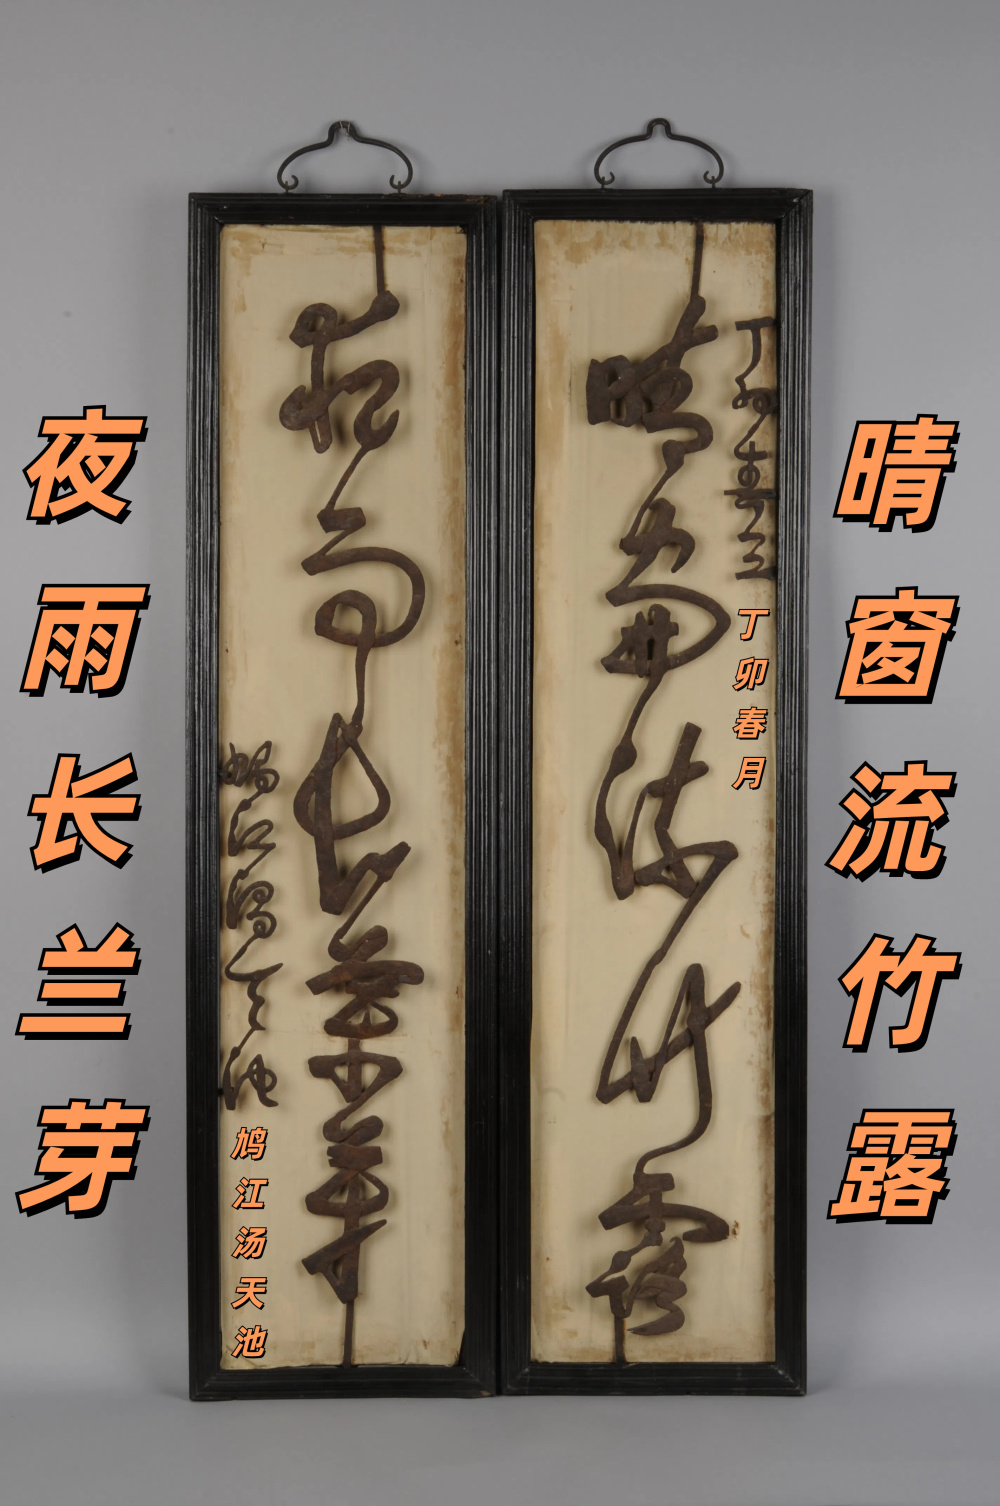 晴窗流竹露
丁卯春
丁卯春月
晴窗流竹露
夜雨長蘭芽
鳩江湯天池
鸠江汤天池
夜雨长兰芽